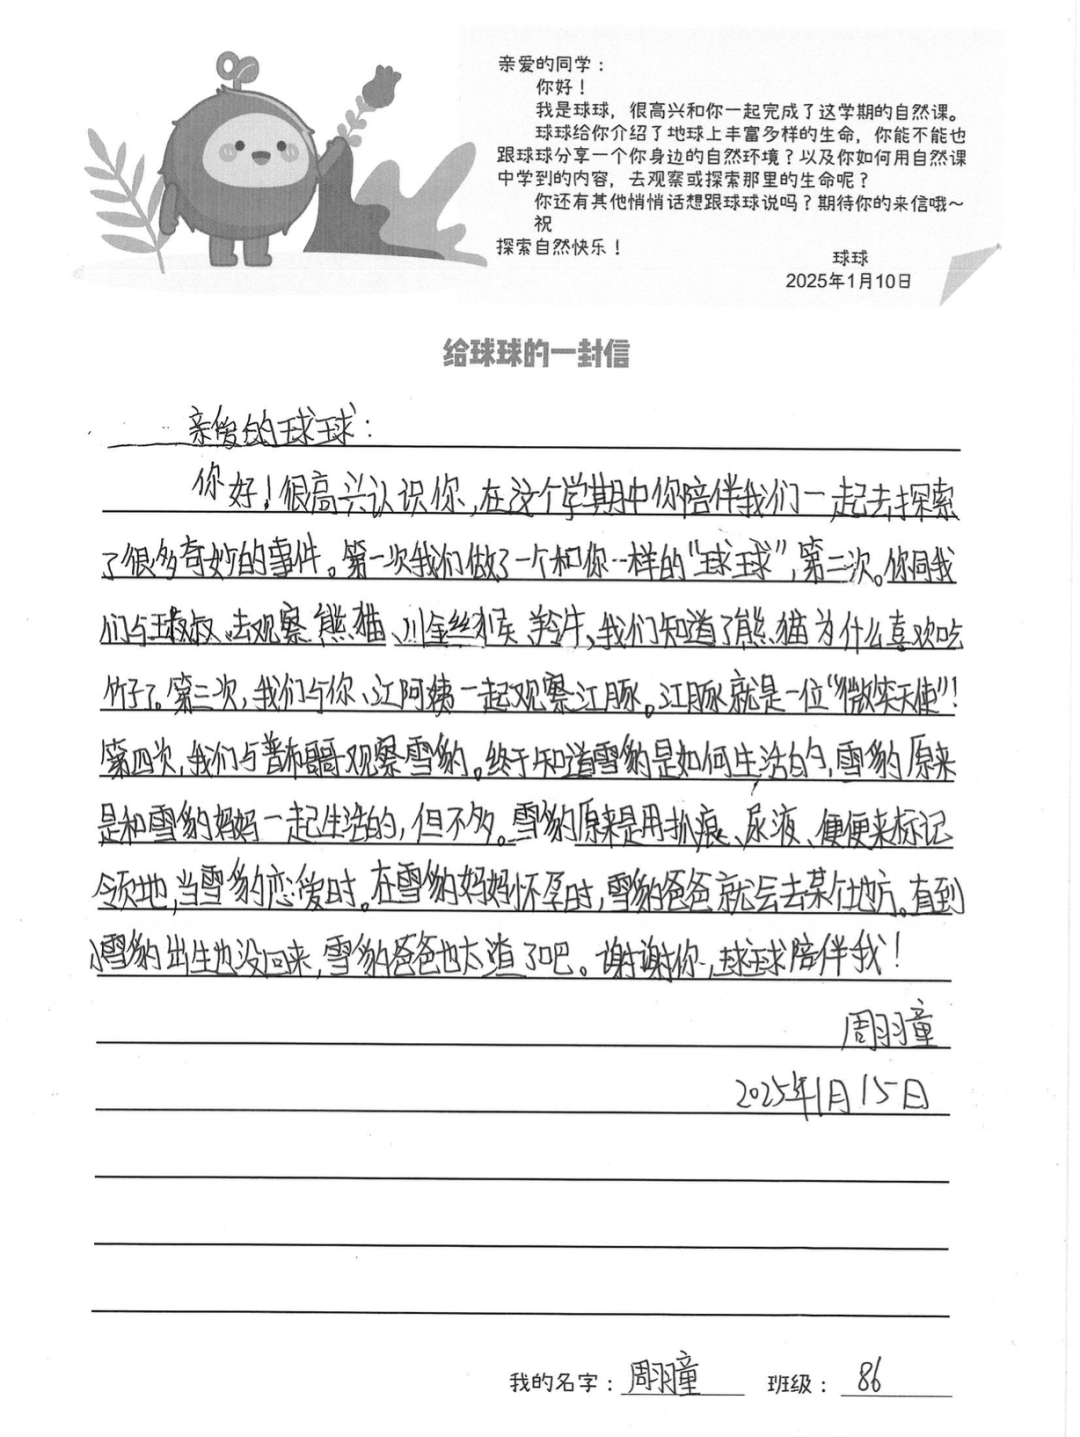 亲爱的同学：
你好！
我是球球，很高兴和你一起完成了这学期的自然课。
球球给你介绍了地球上丰富多样的生命，你能不能也
跟球球分享一个你身边的自然环境？以及你如何用自然课
中学到的内容，去观察或探索那里的生命呢？
你还有其他悄悄话想跟球球说吗？期待你的来信哦～
祝
探索自然快乐！
球球
2025年1月10日
给球球的一封信
亲爱的球球：
你好！很高兴认识你，在这个学期中你陪伴我们一起去探索
了很多奇妙的事件。第一次我们做了一个和你一样的“球球”，第二次。你同我
们与叔叔去观察熊猫、川金丝猴、羚牛、我们知道了熊猫为什么喜欢吃
竹子了。第三次，我们与你、江阿姨一起观察江豚。江豚就是一位“微笑天使”！
第四次，我们与普布哥哥观察雪豹。终于知道雪豹是如何生活的，雪豹原来
是和雪豹妈妈一起生活的，但不多。雪豹原来是用抓痕、尿液、便便来标记
领地，当雪豹恋爱时。在雪豹妈妈怀孕时，雪豹爸爸就会去某个地方。直到
小雪豹出生也没回来，雪豹爸爸也太渣了吧。谢谢你，球球陪伴我！
周羽童
2025年1月15日
我的名字：周羽童 班级：86